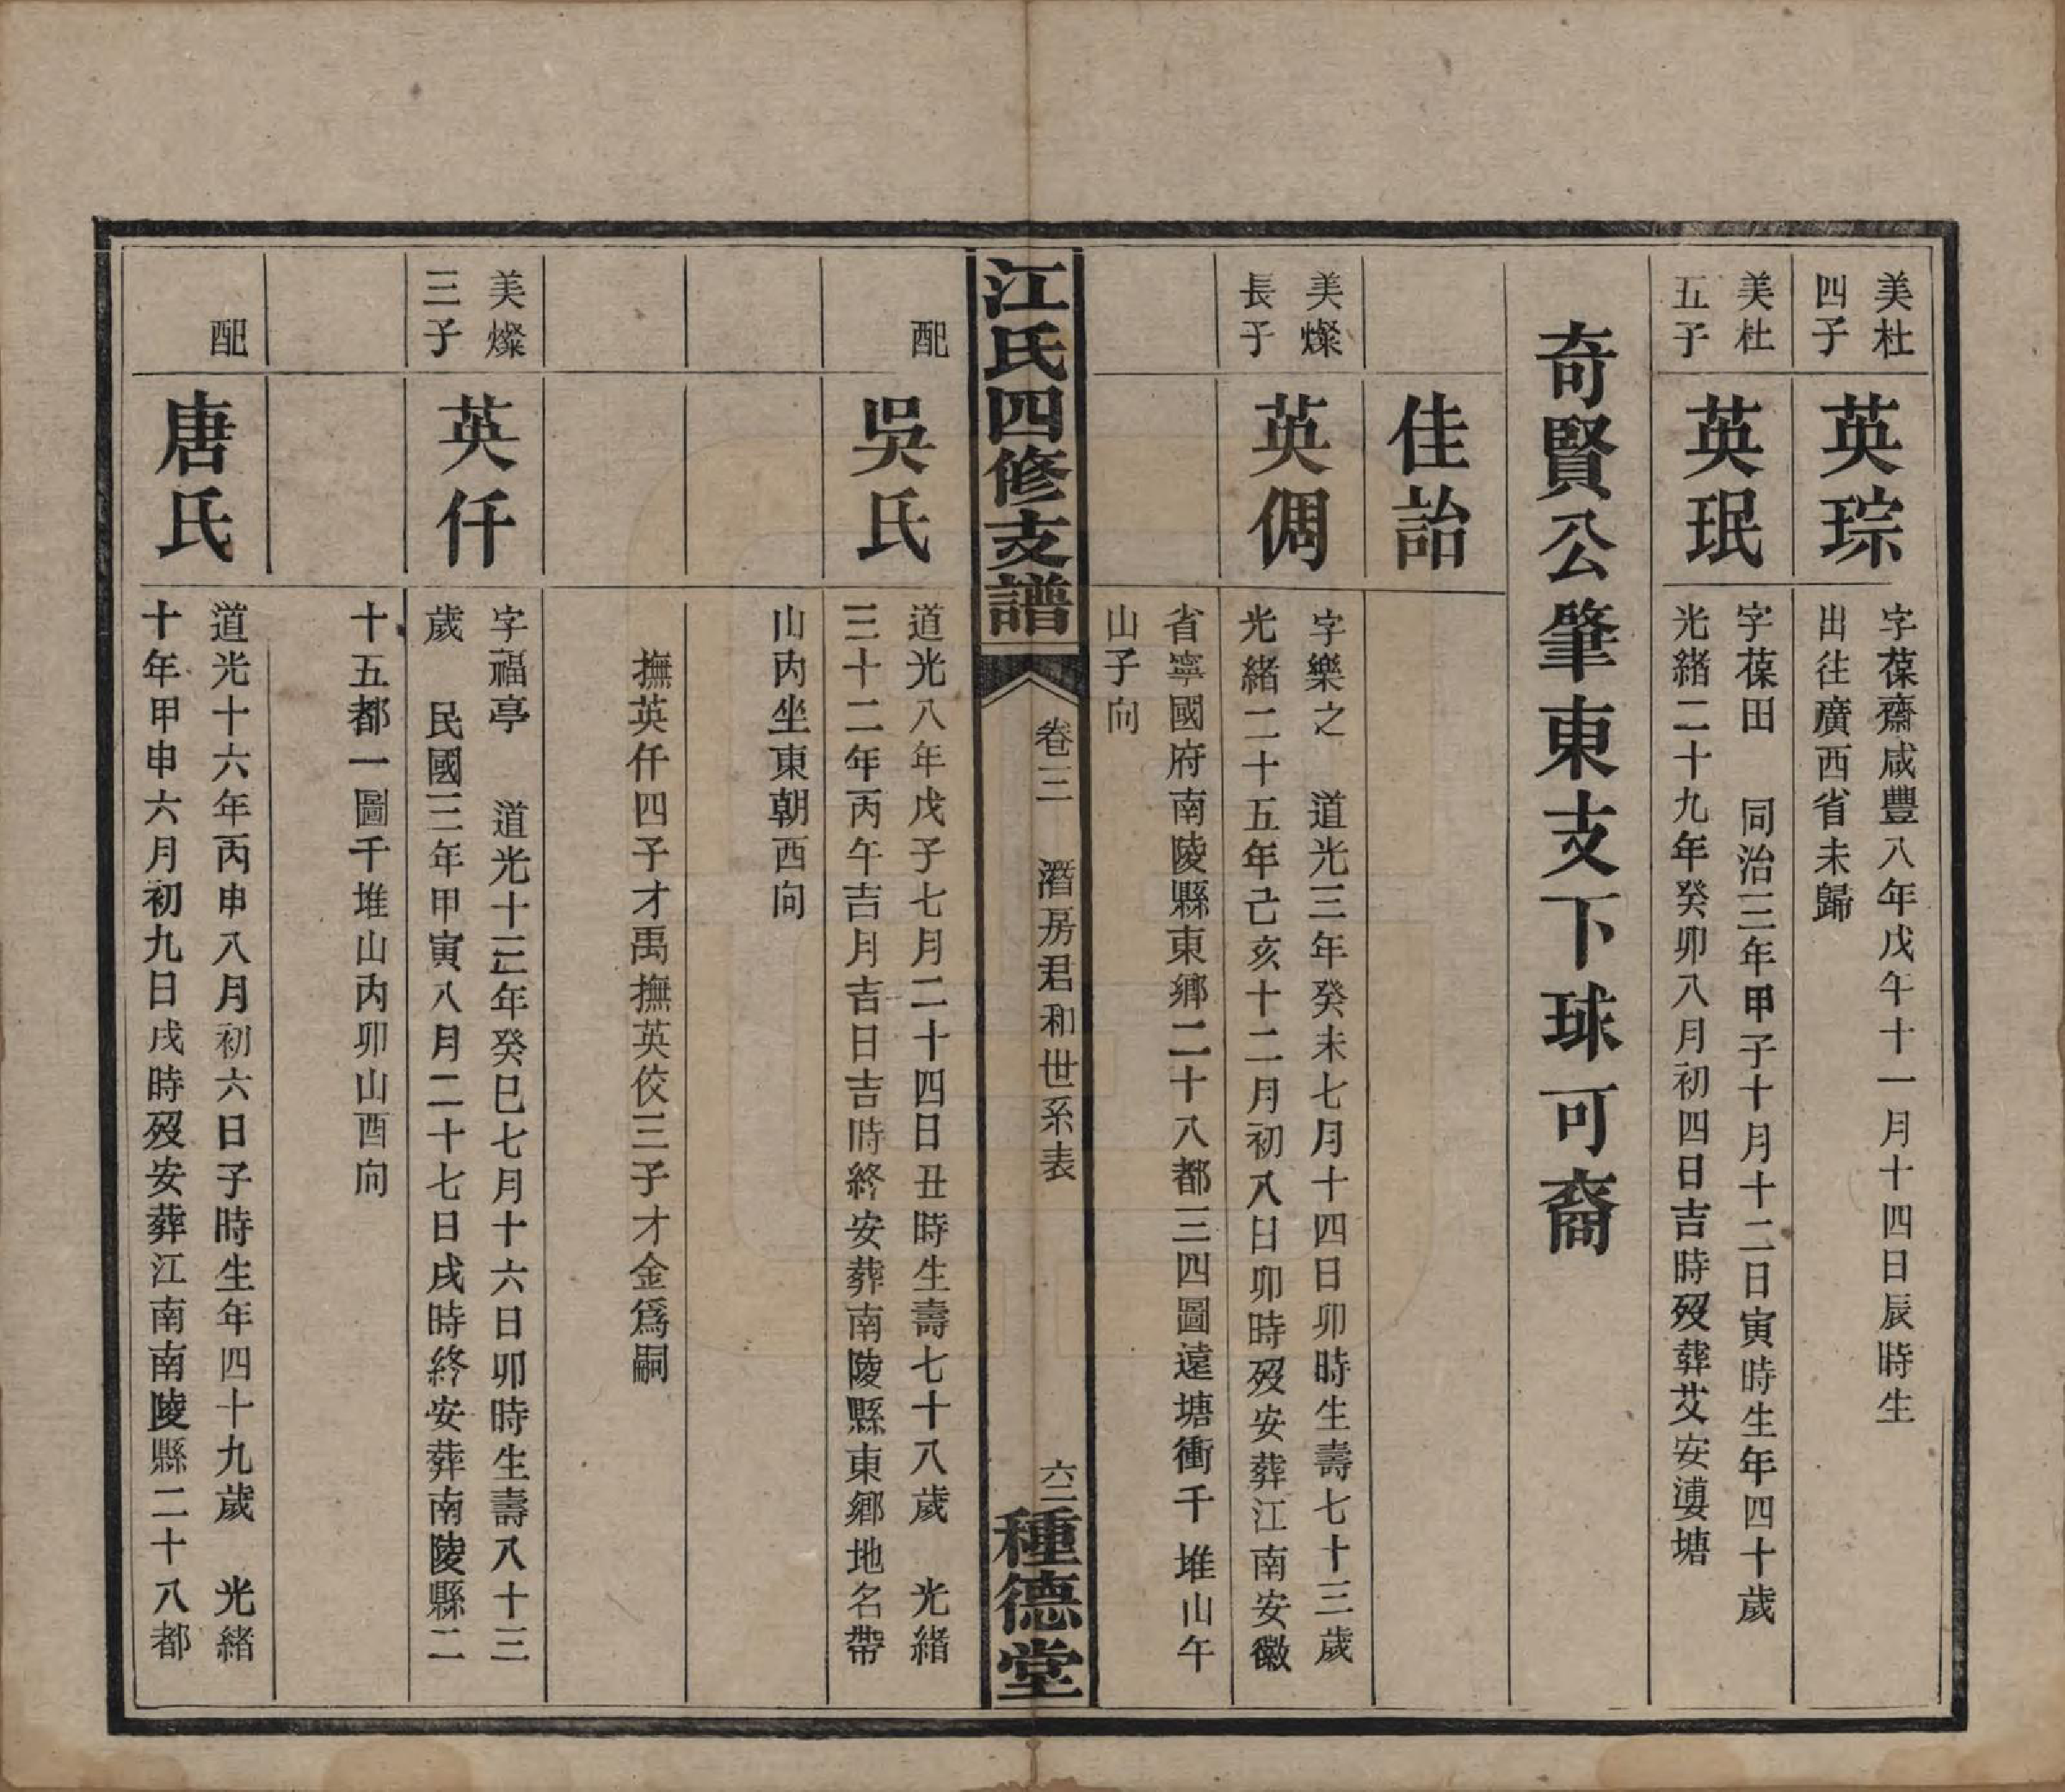 美杜
四子
英琮
字葆齋咸豐八年戊午十一月十四日辰時生
出往廣西省未歸
美杜
五子
英珉
字葆田　同治三年甲子十月十二日寅時生年四十歲
光緒二十九年癸卯八月初四日吉時歿葬艾安塘
奇賢公肇東支下球可裔
佳詒
美燦
長子
英倜
字樂之　道光三年癸未七月十四日卯時生壽七十三歲
光緒二十五年己亥十二月初八日卯時歿安葬江南安徽
省寧國府南陵縣東鄉二十八都三四圖遠塘衝千堆山午
山子向
江氏四修支譜
卷三　潛房君和世系表
六二
種德堂
配
吳氏
道光八年戊子七月二十四日丑時生壽七十八歲　光緒
三十二年丙午吉月吉日吉時終安葬南陵縣東鄉地名帶
山內坐東朝西向
撫英仟四子才禹撫英佼三子才金爲嗣
美燦
三子
英仟
字福亭　道光十三年癸巳七月十六日卯時生壽八十三
歲　民國三年甲寅八月二十七日戌時終安葬南陵縣二
十五都一圖千堆山內卯山酉向
配
唐氏
道光十六年丙申八月初六日子時生年四十九歲　光緒
十年甲申六月初九日戌時歿安葬江南南陵縣二十八都